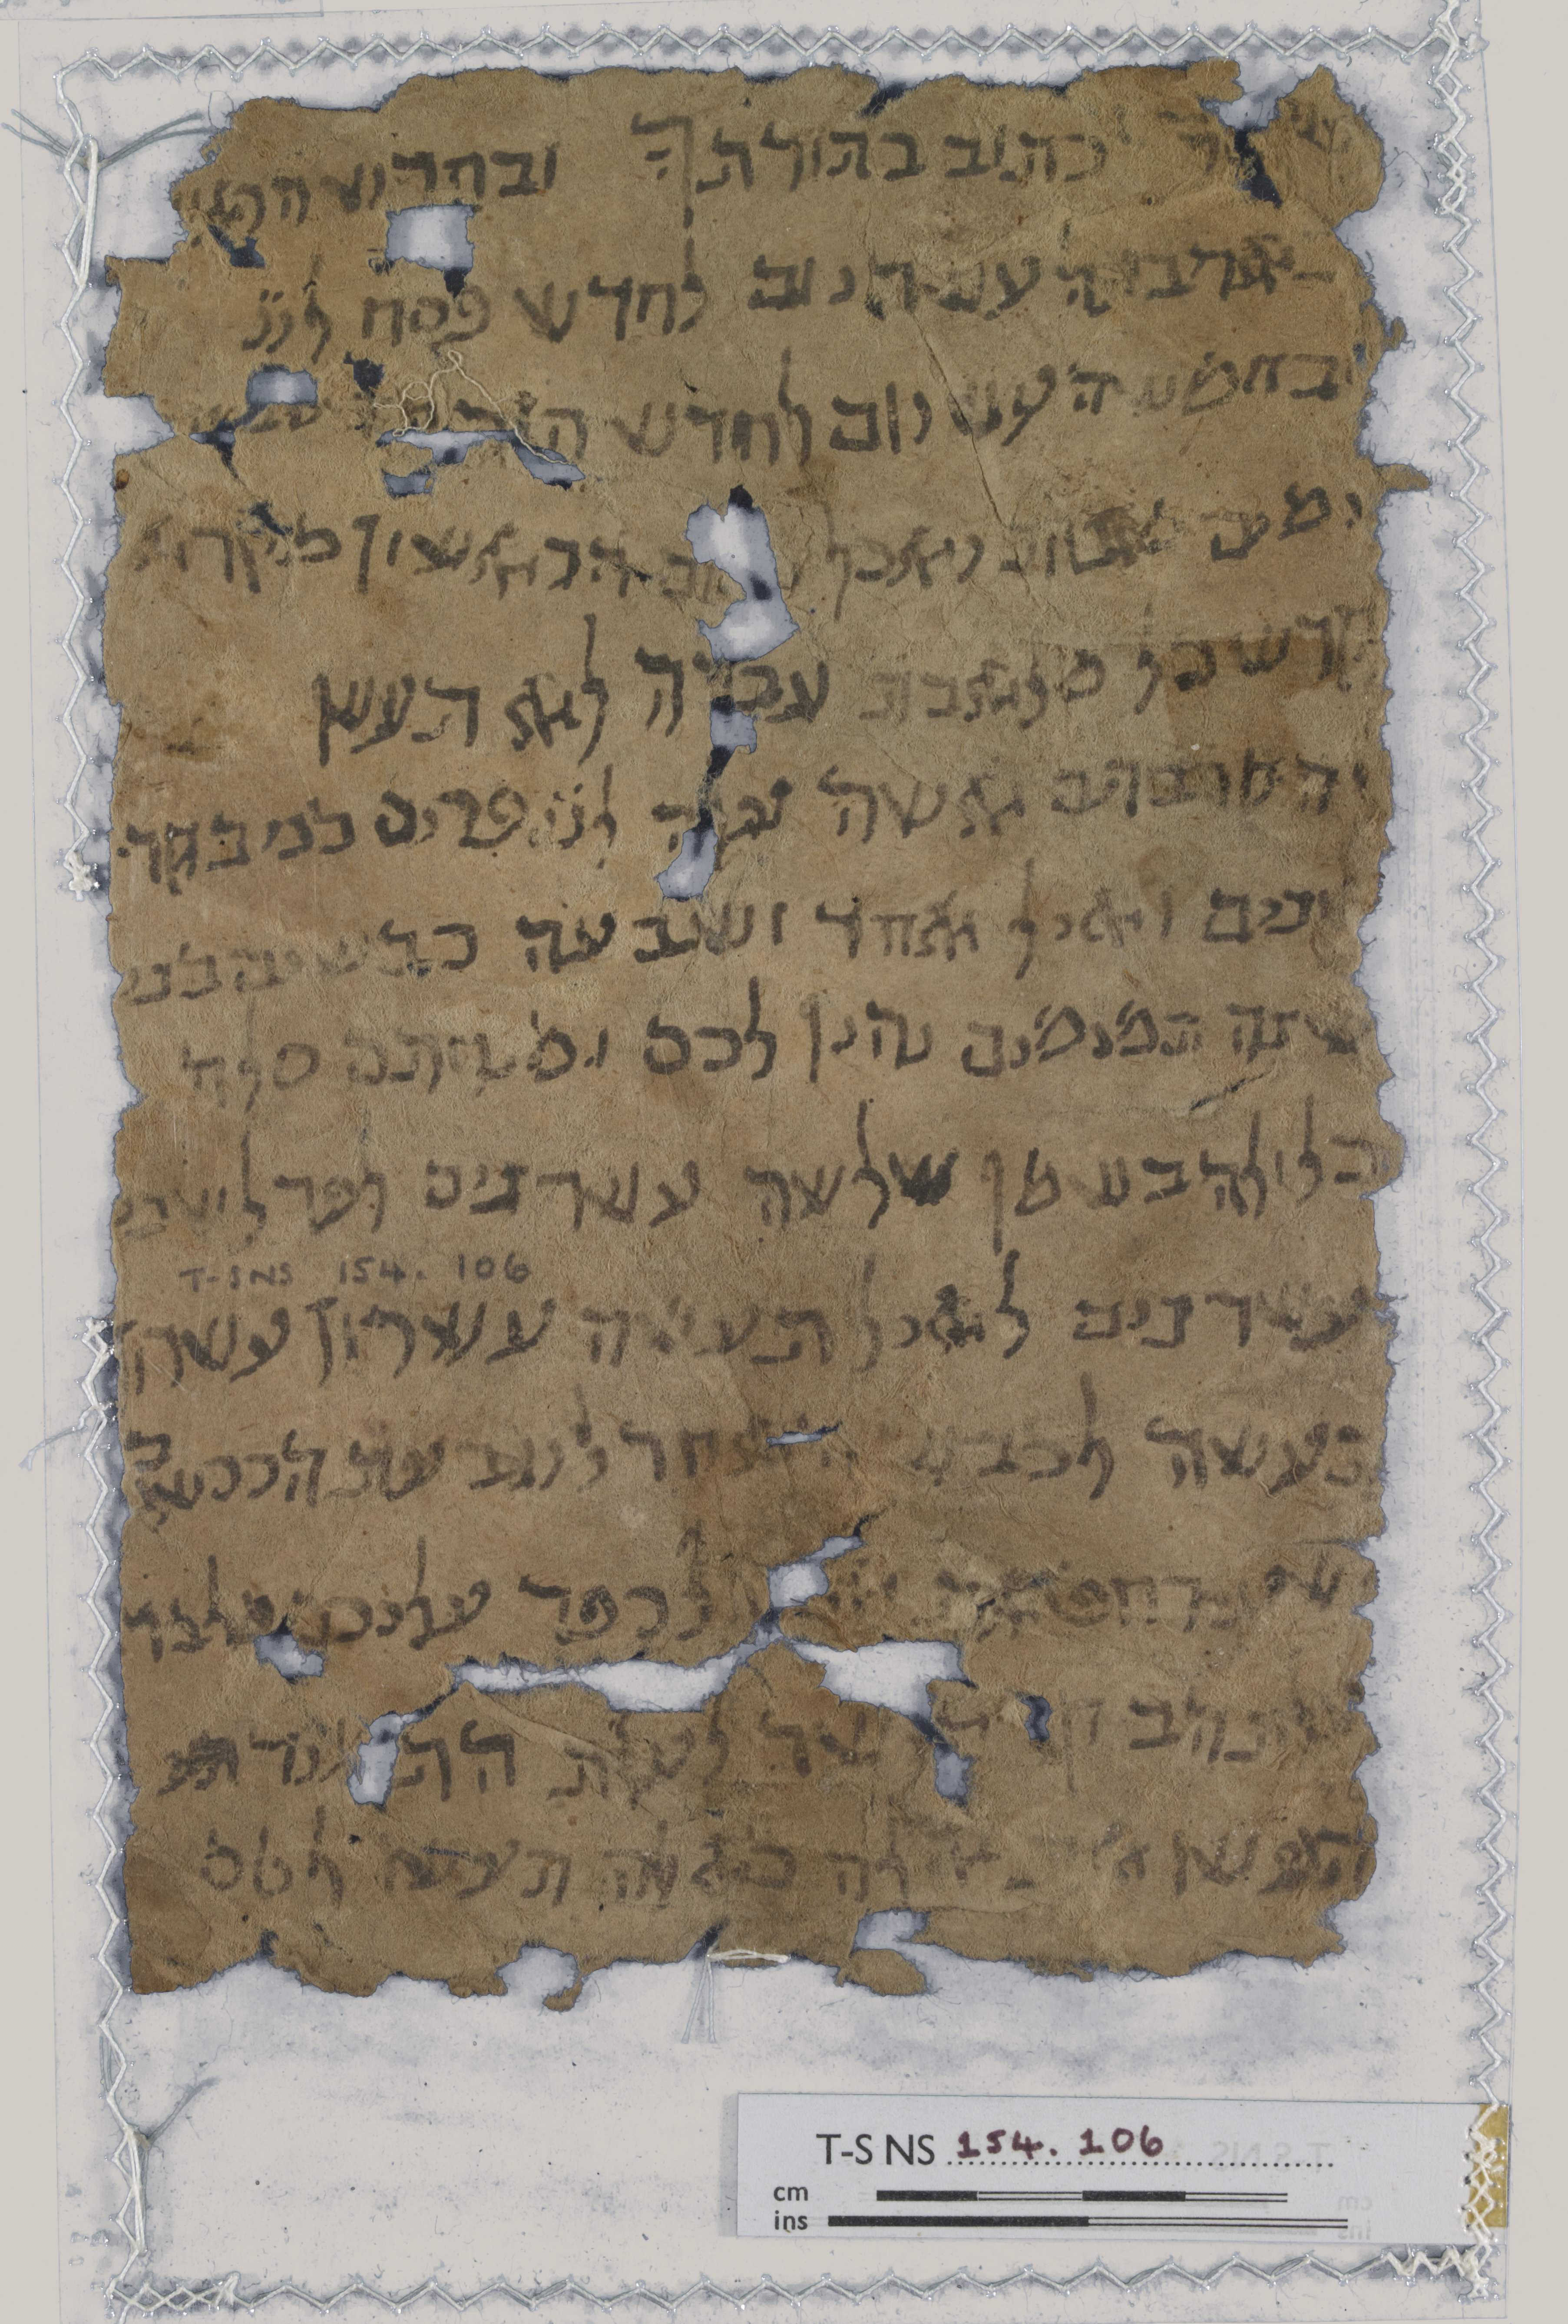 כתוב בתורתך ובחדש הראשון
בארבעה עשר יום לחדש פסח לייי
ובחמשה עשר יום לחדש הזה חג שבעת
ימים מצות יאכל ביום הראשון מקרא
קדש כל מלאכת עבודה לא תעשו
והקרבתם אשה עולה לייי פרים בני בקר
שנים ואיל אחד ושבעה כבשים בני
שנה תמימים יהיו לכם ומנחתם סלת
בלולה בשמן שלשה עשרנים לפר ושני
T-S NS 154. 106
עשרנים לאיל תעשה עשרון עשרון
תעשה לכבש האחד לשבעת הכבשים
ושעיר חטאת לכפר עליכם מלבד
עולת הבקר אשר לעלת התמיד
תעשו את אלה כאלה תעשו
T-S NS 154. 106
cm
ins